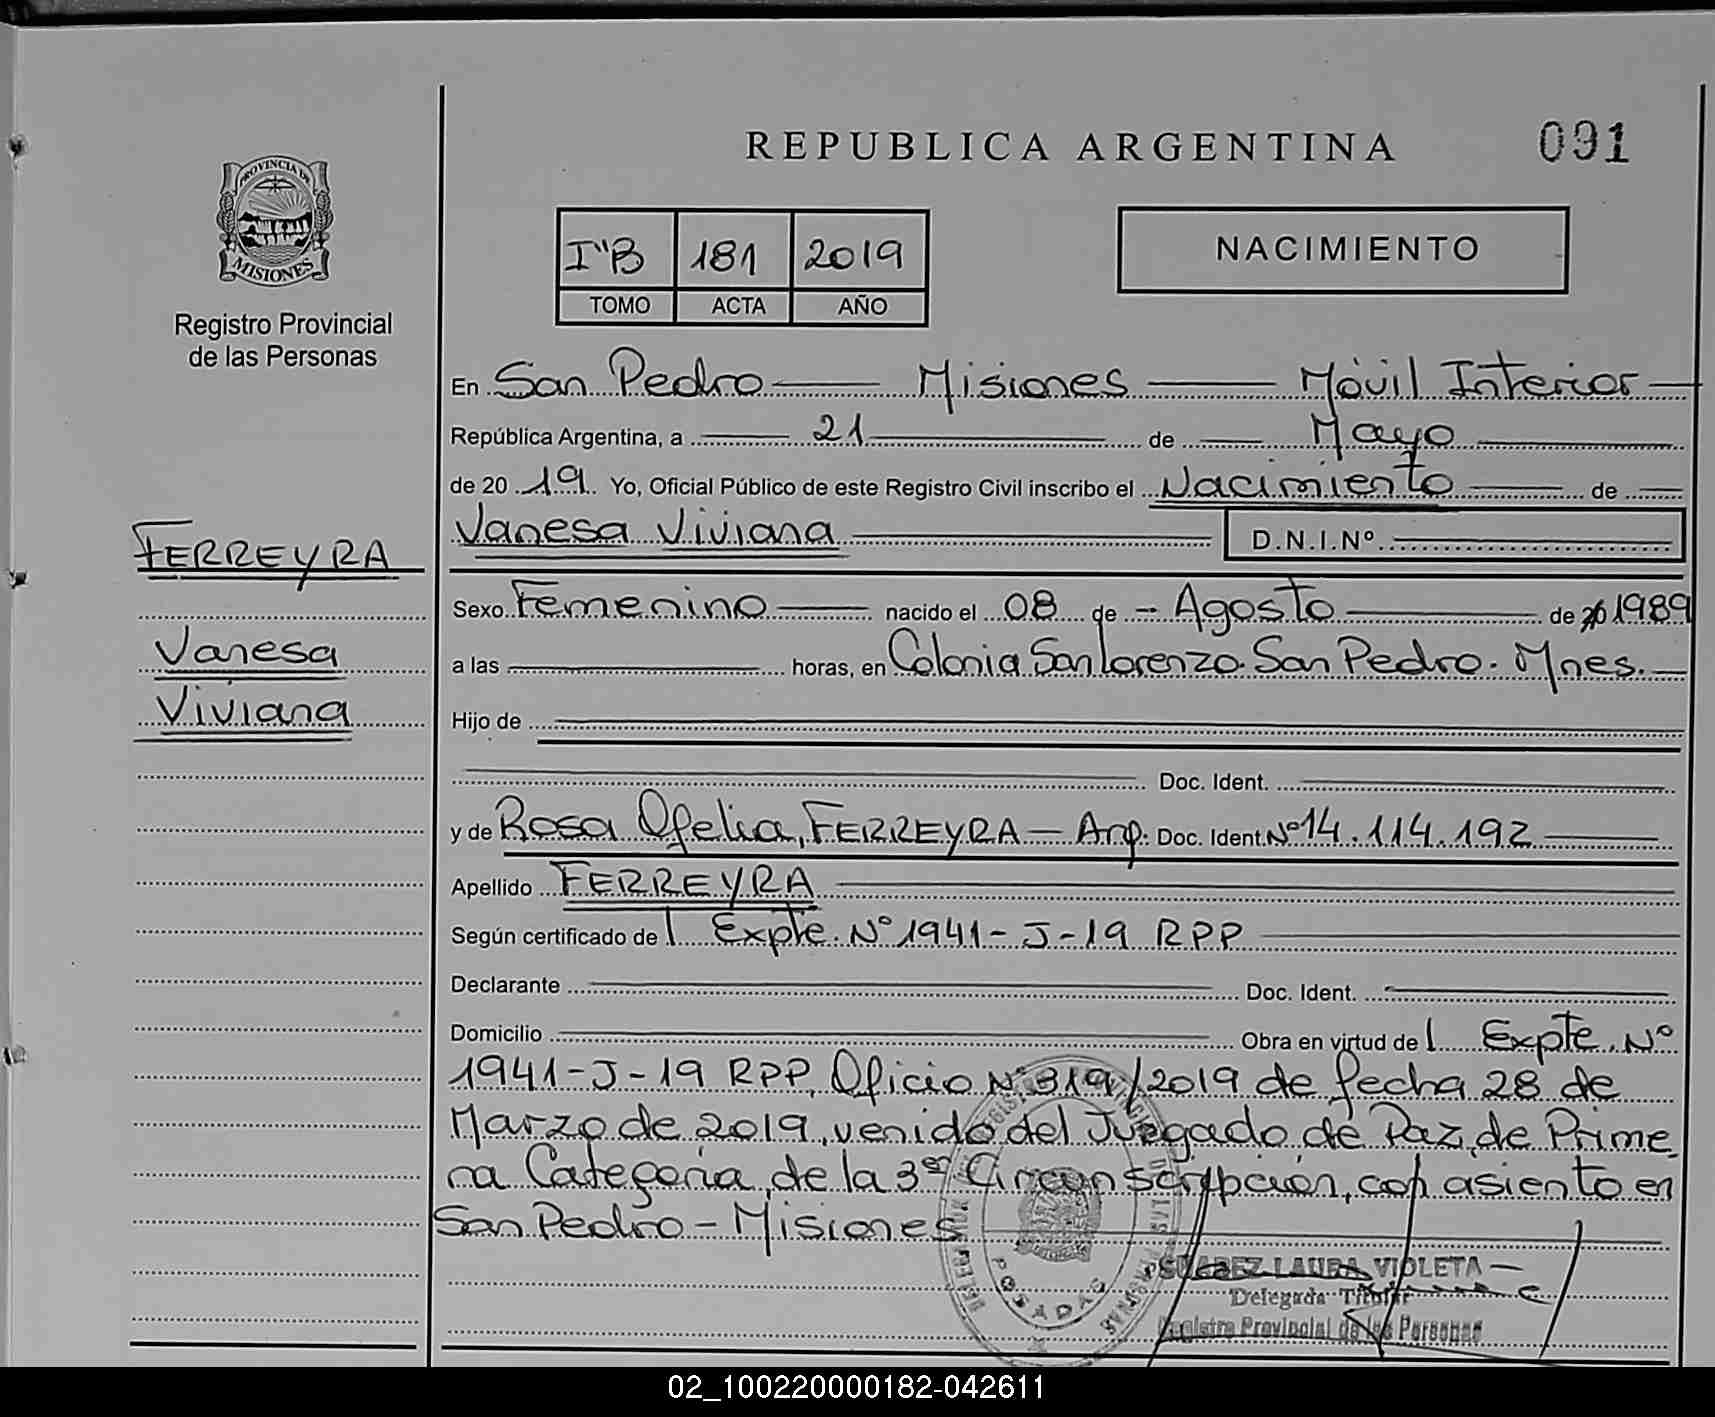 REPUBLICA ARGENTINA
091
PROVINCIA DE
MISIONES
Registro Provincial
de las Personas
I"B 181 2019
TOMO ACTA AÑO
NACIMIENTO
En San Pedro Misiones Móvil Interior
República Argentina, a 21 de Mayo
de 2019 Yo, Oficial Público de este Registro Civil inscribo el Nacimiento de
Vanesa Viviana D.N.I.Nº
FERREYRA
Vanesa
Viviana
Sexo Femenino nacido el 08 de Agosto de 1989
a las horas, en Colonia San Lorenzo. San Pedro. Mnes.
Hijo de
Doc. Ident.
y de Rosa Ofelia, FERREYRA - Arg. Doc. Ident. Nº 14.114.192
Apellido FERREYRA
Según certificado de Expte. Nº 1941-J-19 RPP
Declarante Doc. Ident.
Domicilio Obra en virtud de Expte. Nº
1941-J-19 RPP, Oficio Nº 319/2019 de fecha 28 de
Marzo de 2019, venido del Juzgado de Paz, de Prime
ra Categoria, de la 3er Circunscripción, con asiento en
San Pedro - Misiones
POSADAS
SUAREZ LAURA VIOLETA
Delegada Titular
Registro Provincial de las Personas
02_100220000182-042611